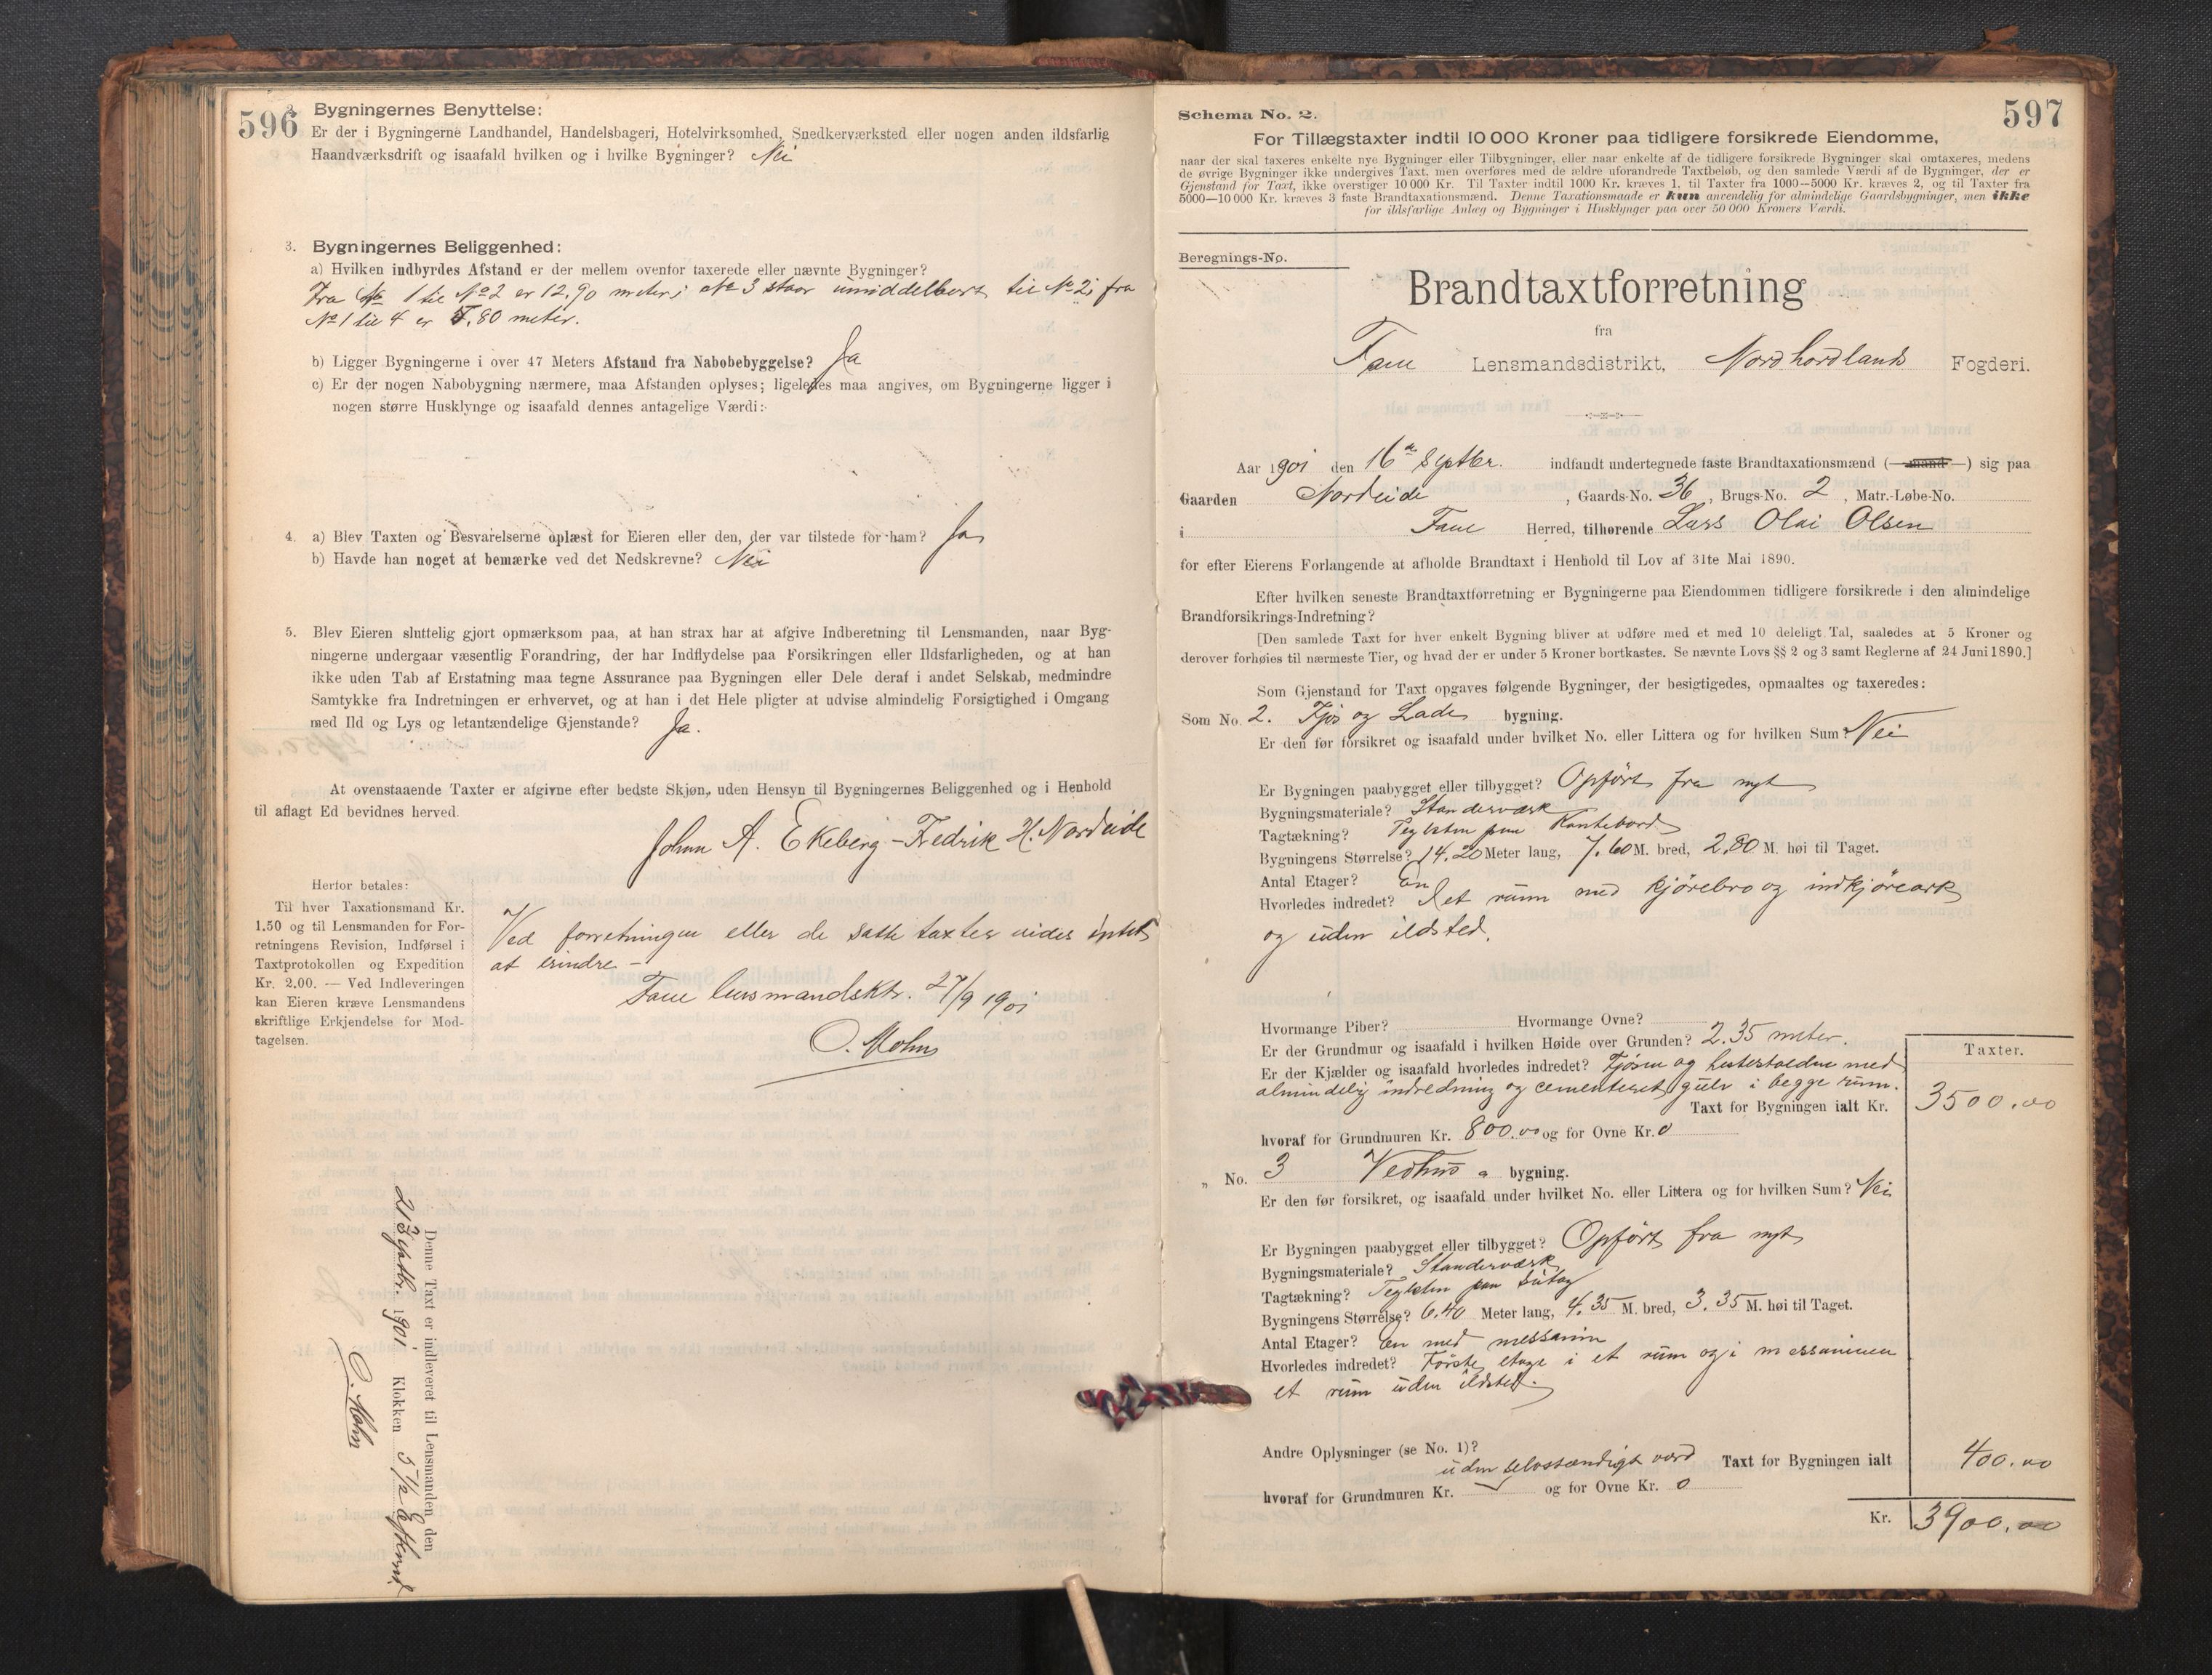 596
2. Bygningernes Benyttelse:
Er der i Bygningerne Landhandel, Handelsbageri, Hotelvirksomhed, Snedkerværksted eller nogen anden ildsfarlig
Haandværksdrift og isaafald hvilken og i hvilke Bygninger? Nei
3. Bygningernes Beliggenhed:
a) Hvilken indbyrdes Afstand er der mellem ovenfor taxerede eller nævnte Bygninger?
Fra No 1 til No 2 er 12,90 meter; No 3 staar umiddelbart til No 2; fra
No 1 til 4 er 7,80 meter.
b) Ligger Bygningerne i over 47 Meters Afstand fra Nabobebyggelse? Ja
c) Er der nogen Nabobygning nærmere, maa Afstanden oplyses; ligeledes maa angives, om Bygningerne ligger i
nogen større Husklynge og isaafald dennes antagelige Værdi:
4. a) Blev Taxten og Besvarelserne oplæst for Eieren eller den, der var tilstede for ham? Ja
b) Havde han noget at bemærke ved det Nedskrevne? Nei
5. Blev Eieren sluttelig gjort opmærksom paa, at han strax har at afgive Indberetning til Lensmanden, naar Byg-
ningerne undergaar væsentlig Forandring, der har Indflydelse paa Forsikringen eller Ildsfarligheden, og at han
ikke uden Tab af Erstatning maa tegne Assurance paa Bygningen eller Dele deraf i andet Selskab, medmindre
Samtykke fra Indretningen er erhvervet, og at han i det Hele pligter at udvise almindelig Forsigtighed i Omgang
med Ild og Lys og letantændelige Gjenstande? Ja.
At ovenstaaende Taxter er afgivne efter bedste Skjøn, uden Hensyn til Bygningernes Beliggenhed og i Henhold
til aflagt Ed bevidnes herved.
John A. Ekeberg - Fredrik H. Nordeide
Herfor betales:
Til hver Taxationsmand Kr.
1.50 og til Lensmanden for For-
retningens Revision, Indførsel i
Taxtprotokollen og Expedition
Kr. 2.00. — Ved Indleveringen
kan Eieren kræve Lensmandens
skriftlige Erkjendelse for Mod-
tagelsen.
Ved forretningen eller de satte taxter vides intet
at erindre —
Fane lensmandsktr. 27/9 1901
O. Mohn
Denne Taxt er indleveret til Lensmanden den
21 Septbr. 1901 Klokken 5 1/2 Efterm.
O. Mohn
597
Schema No. 2.
For Tillægstaxter indtil 10 000 Kroner paa tidligere forsikrede Eiendomme,
naar der skal taxeres enkelte nye Bygninger eller Tilbygninger, eller naar enkelte af de tidligere forsikrede Bygninger skal omtaxeres, medens
de øvrige Bygninger ikke undergives Taxt, men overføres med de ældre uforandrede Taxtbeløb, og den samlede Værdi af de Bygninger, der er
Gjenstand for Taxt, ikke overstiger 10 000 Kr. Til Taxter indtil 1000 Kr. kræves 1, til Taxter fra 1000—5000 Kr. kræves 2, og til Taxter fra
5000—10 000 Kr. kræves 3 faste Brandtaxationsmænd. Denne Taxationsmaade er kun anvendelig for almindelige Gaardsbygninger, men ikke
for ildsfarlige Anlæg og Bygninger i Husklynger paa over 50 000 Kroners Værdi.
Beregnings-No.
Brandtaxtforretning
fra
Fane Lensmandsdistrikt, Nordhordlands Fogderi.
Aar 1901 den 16de Septbr. indfandt undertegnede faste Brandtaxationsmænd (—mand—) sig paa
Gaarden Nordeide, Gaards-No. 36, Brugs-No. 2, Matr.-Løbe-No.
i Fane Herred, tilhørende Lars Olai Olsen
for efter Eierens Forlangende at afholde Brandtaxt i Henhold til Lov af 31te Mai 1890.
Efter hvilken seneste Brandtaxtforretning er Bygningerne paa Eiendommen tidligere forsikrede i den almindelige
Brandforsikrings-Indretning?
[Den samlede Taxt for hver enkelt Bygning bliver at udføre med et med 10 deleligt Tal, saaledes at 5 Kroner og
derover forhøies til nærmeste Tier, og hvad der er under 5 Kroner bortkastes. Se nævnte Lovs §§ 2 og 3 samt Reglerne af 24 Juni 1890.]
Som Gjenstand for Taxt opgaves følgende Bygninger, der besigtigedes, opmaaltes og taxeredes:
Som No. 2. Fjøs og Lade bygning.
Er den før forsikret og isaafald under hvilket No. eller Littera og for hvilken Sum? Nei
Er Bygningen paabygget eller tilbygget? Opført fra nyt
Bygningsmateriale? Standerværk
Tagtækning? Teglsten paa Kantebord
Bygningens Størrelse? 14.20 Meter lang, 7.60 M. bred, 2.80 M. høi til Taget.
Antal Etager? En
Hvorledes indredet? I et rum med kjørebro og indkjøreark
og uden ildsted.
Hvormange Piber? Hvormange Ovne?
Er der Grundmur og isaafald i hvilken Høide over Grunden? 2.35 meter.
Er der Kjælder og isaafald hvorledes indredet? Fjøsen og hestestalden med
almindelig indredning og cementeret gulv i begge rum.
Taxter.
Taxt for Bygningen ialt Kr. 3500.00
hvoraf for Grundmuren Kr. 800.00 og for Ovne Kr. 0
„ No. 3 Vedhus bygning.
Er den før forsikret, og isaafald under hvilket No. eller Littera og for hvilken Sum? Nei
Er Bygningen paabygget eller tilbygget? Opført fra nyt
Bygningsmateriale? Standerværk
Tagtækning? Teglsten paa sutag
Bygningens Størrelse? 6.40 Meter lang, 4.35 M. bred, 3.35 M. høi til Taget.
Antal Etager? En med messanin
Hvorledes indredet? Første etage i et rum og i messaninen
et rum uden ildsted.
Andre Oplysninger (se No. 1)?
uden selvstændigt værd Taxt for Bygningen ialt 400.00
hvoraf for Grundmuren Kr. og for Ovne Kr. 0
Kr. 3900.00